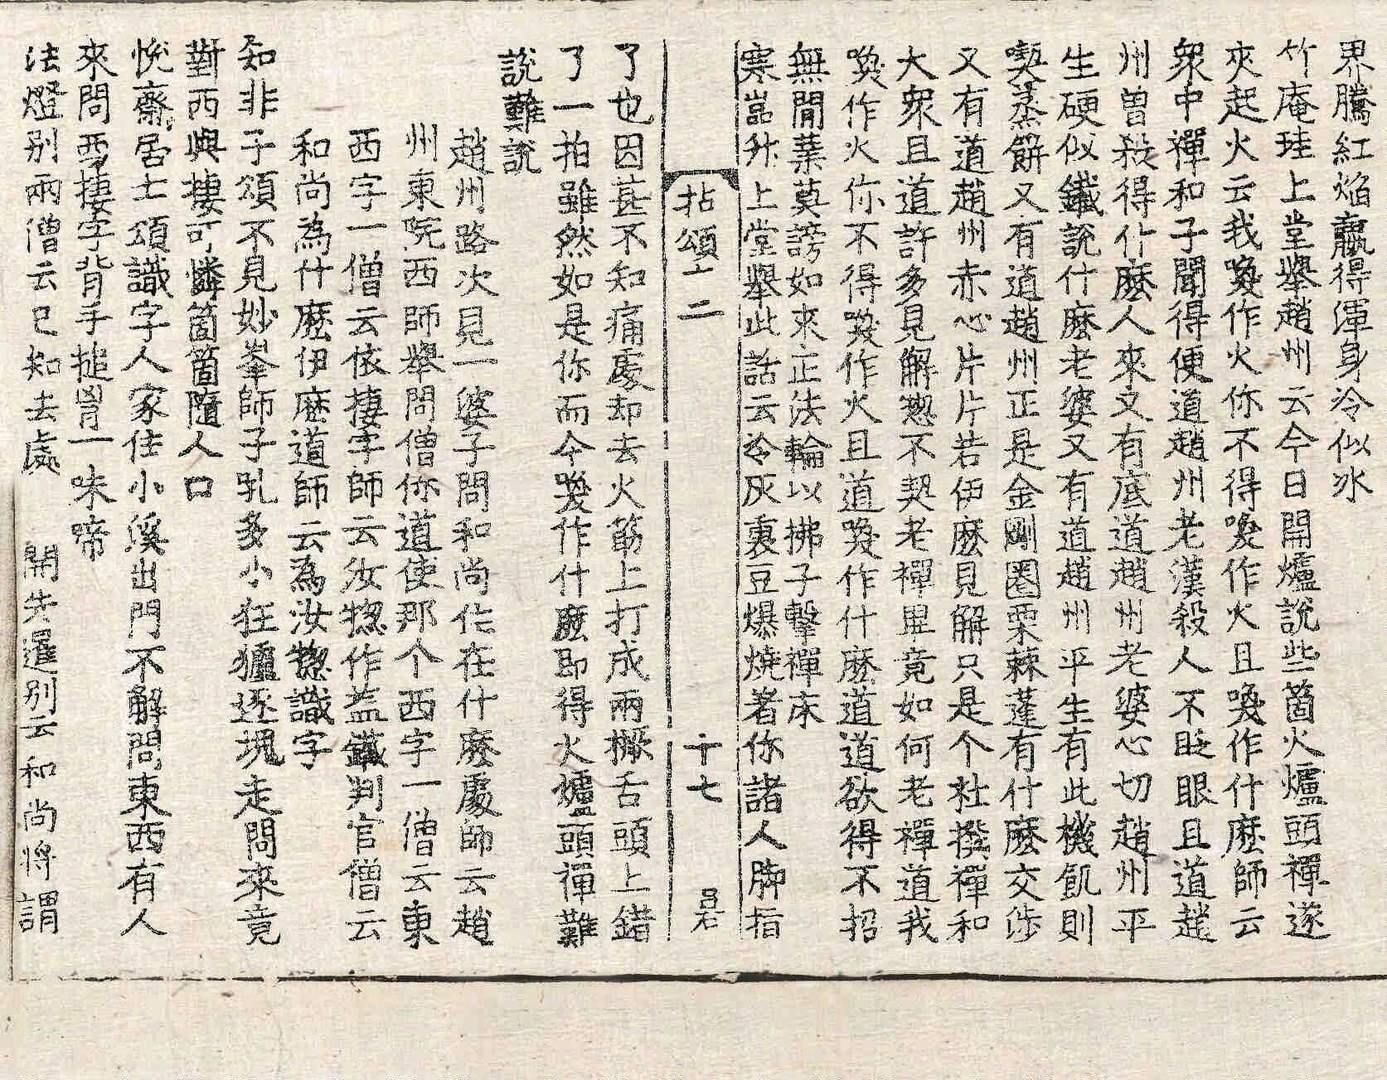 界騰紅焰贏得渾身冷似氷
竹庵珪上堂舉趙州云今日開爐說些箇火爐頭禪遂
夾起火云我喚作火你不得喚作火且喚作什麽師云
衆中禪和子聞得便道趙州老漢殺人不眨眼且道趙
州曾殺得什麽人來又有底道趙州老婆心切趙州平
生硬似鐵說什麽老婆又有道趙州平生有此機飢則
喫蒸餅又有道趙州正是金剛圈栗棘蓬有什麽交涉
又有道趙州赤心片片若伊麽見解只是个杜撰禪和
大衆且道許多見解惣不契老禪畢竟如何老禪道我
喚作火你不得喚作火且道喚作什麽道道欲得不招
無間業莫謗如來正法輪以拂子擊禪床
寒嵓升上堂舉此話云冷灰裏豆爆燒著你諸人脚指
拈頌十二 十七 呂右
了也因甚不知痛處却去火筯上打成兩橛舌頭上錯
了一拍雖然如是你而今喚作什麽即得火爐頭禪難
說難說
趙州路次見一婆子問和尚住在什麽處師云趙
州東院西師舉問僧你道使那个西字一僧云東
西字一僧云依棲字師云汝惣作盐鐵判官僧云
和尚為什麽伊麽道師云為汝惣識字
知非子頌不見妙峯師子乳多少狂獹逐塊走問來竟
對西與棲可憐箇箇隨人口
悅齋居士頌識字人家住小溪出門不解問東西有人
來問西棲字背手搥胷一味啼
法燈別兩僧云已知去處 開先暹別云和尚將謂